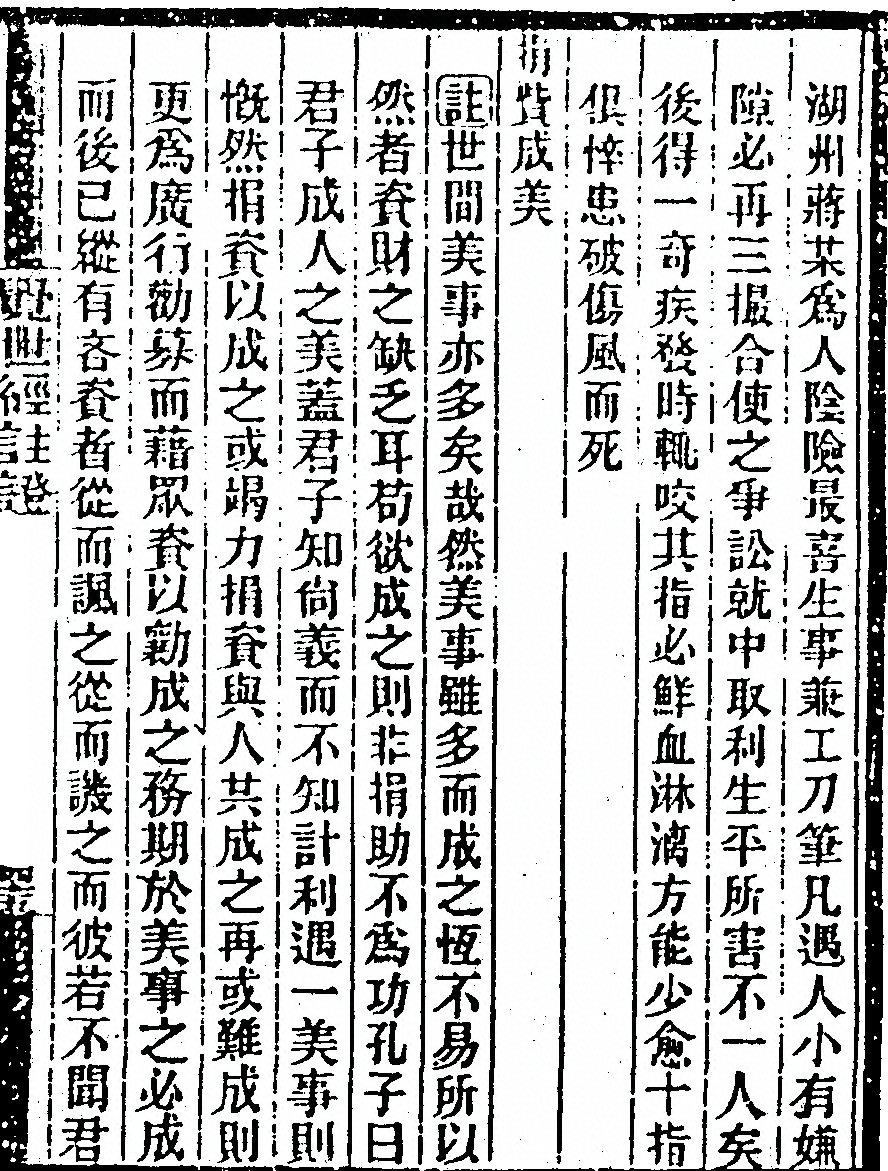 湖州蔣某為人陰險最喜生事兼工刀筆凡遇人小有嫌
隙必再三撮合使之爭訟就中取利生平所害不一人矣
後得一奇疾發時輒咬其指必鮮血淋漓方能少愈十指
俱悴患破傷風而死
捐貲成美
註世間美事亦多矣哉然美事雖多而成之恆不易所以
然者資財之缺乏耳苟欲成之則非捐助不為功孔子曰
君子成人之美蓋君子知尚義而不知計利遇一美事則
慨然捐資以成之或竭力捐資與人共成之再或難成則
更為廣行勸募而藉眾資以勷成之務期於美事之必成
而後已縱有吝資者從而諷之從而譏之而彼若不聞君
覺世經註證